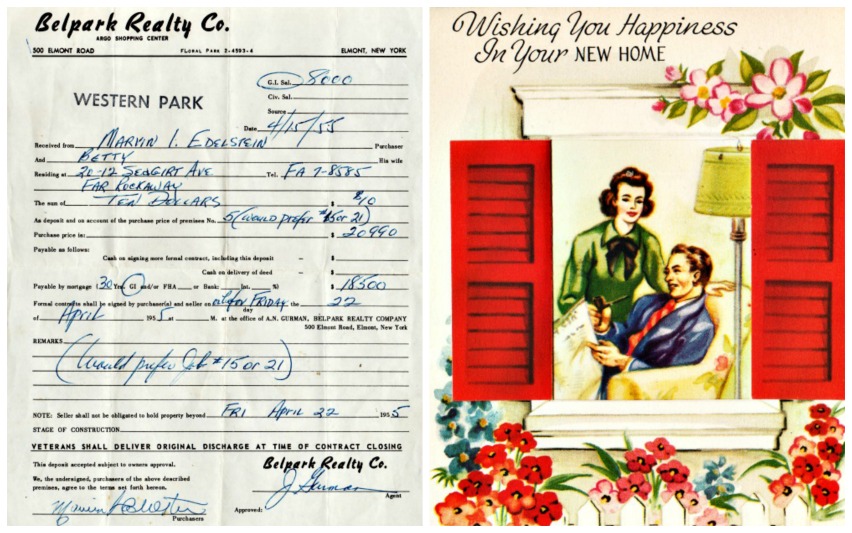 Belpark Realty Co.
ARGO SHOPPING CENTER
500 ELMONT ROAD FLORAL PARK 2-4593-4 ELMONT, NEW YORK
G.I. Sal. 8000
WESTERN PARK
Civ. Sal.
Source
Date 4/15/55
Received from MARVIN I. EDELSTEIN Purchaser
And BETTY His wife
Residing at 20-12 SEAGIRT AVE Tel. FA 7-8585
FAR ROCKAWAY
The sum of TEN DOLLARS $ $10
As deposit and on account of the purchase price of premises No. 5 (would prefer #15 or 21)
Purchase price is: $ 20990
Payable as follows:
Cash on signing more formal contract, including this deposit – $
Cash on delivery of deed – $
Payable by mortgage (30 Yrs. GI and/or FHA or Bank: Int. %) $ 18500
Formal contracts shall be signed by purchaser(s) and seller on or before FRIDAY the 22
day
of April 1955 at M. at the office of A.N. GURMAN, BELPARK REALTY COMPANY
500 Elmont Road, Elmont, New York
REMARKS
(Would prefer Job #15 or 21)
NOTE: Seller shall not be obligated to hold property beyond FRI April 22 1955
STAGE OF CONSTRUCTION
VETERANS SHALL DELIVER ORIGINAL DISCHARGE AT TIME OF CONTRACT CLOSING
This deposit accepted subject to owners approval.
Belpark Realty Co.
We, the undersigned, purchasers of the above described
premises, agree to the terms set forth hereon.
J Gurman
Agent
Approved:
Purchasers
Wishing You Happiness
In Your NEW HOME